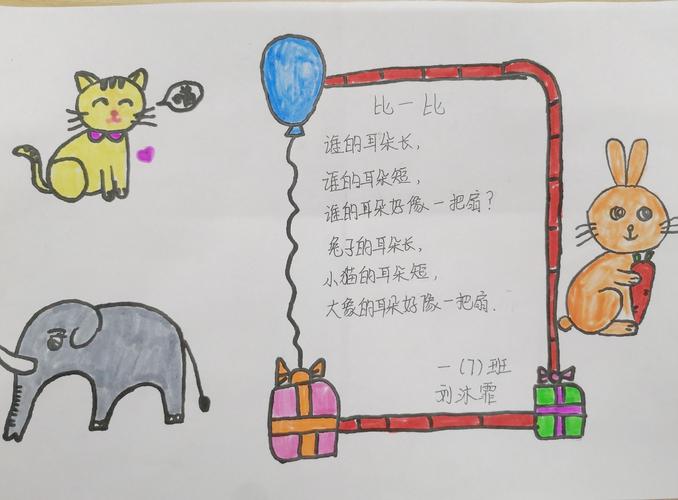 比一比
谁的耳朵长,
谁的耳朵短,
谁的耳朵好像一把扇?
兔子的耳朵长,
小猫的耳朵短,
大象的耳朵好像一把扇.
一(7)班
刘沐霏